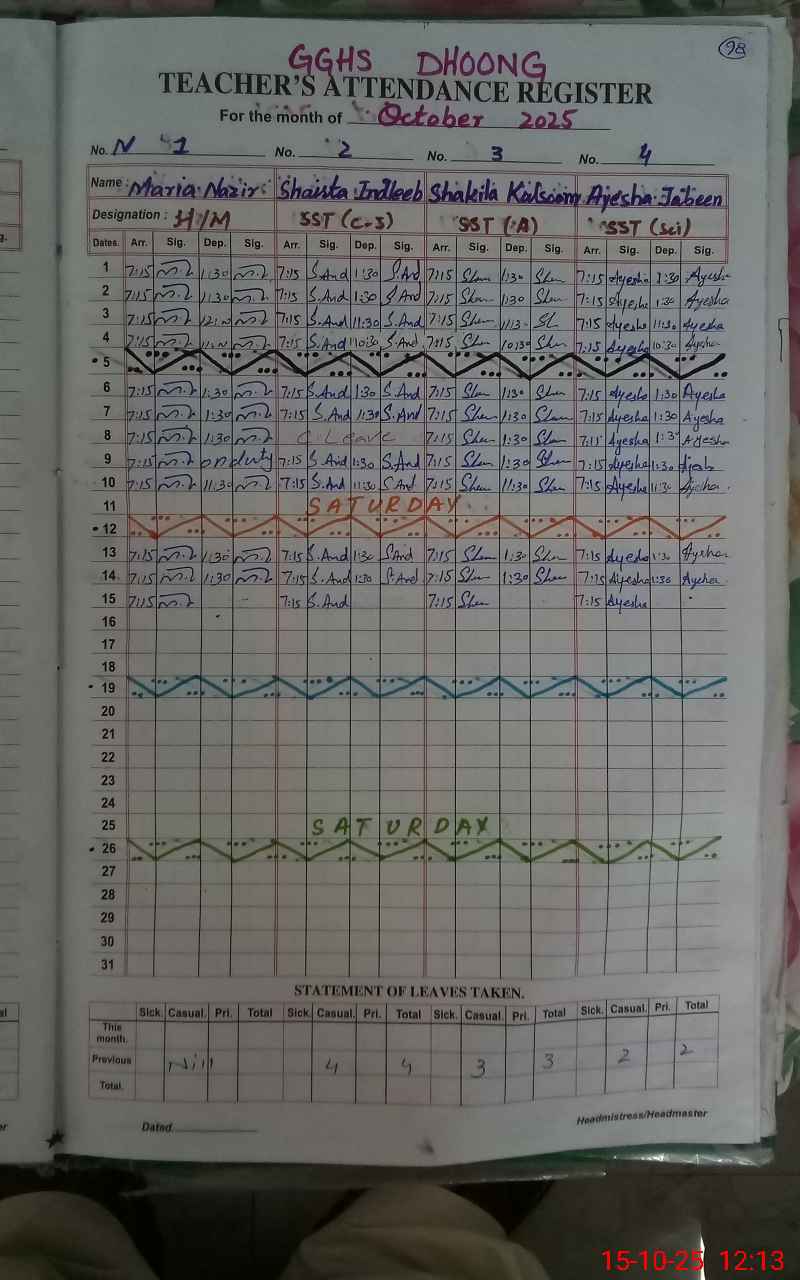 98
GGHS DHOONG
TEACHER'S ATTENDANCE REGISTER
For the month of October 2025
No. N 1 No. 2 No. 3 No. 4
Name : Maria Nazir Shaista Indleeb Shakila Kalsoom Ayesha Jabeen
Designation : H/M SST (C.S) SST (A) SST (Sci)
Dates. Arr. Sig. Dep. Sig. Arr. Sig. Dep. Sig. Arr. Sig. Dep. Sig. Arr. Sig. Dep. Sig.
1 7:15 1:30 7:15 S.And 1:30 S.And 7:15 Shem 1:30 Shem 7:15 Ayesha 1:30 Ayesha
2 7:15 1:30 7:15 S.And 1:30 S.And 7:15 Shem 1:30 Shem 7:15 Ayesha 1:30 Ayesha
3 7:15 7:15 S.And 11:30 S.And 7:15 Shem 7:15 Ayesha 11:30 Ayesha
4 7:15 7:15 S.And 10:30 S.And 7:15 Shem 10:30 Shem 7:15 Ayesha 10:30 Ayesha
5
6 7:15 1:30 7:15 S.And 1:30 S.And 7:15 Shem 1:30 Shem 7:15 Ayesha 1:30 Ayesha
7 7:15 1:30 7:15 S.And 1:30 S.And 7:15 Shem 1:30 Shem 7:15 Ayesha 1:30 Ayesha
8 7:15 1:30 C Leave 7:15 Shem 1:30 Shem Ayesha Ayesha
9 7:15 on duty 7:15 S.And 1:30 S.And 7:15 Shem 1:30 Shem 7:15 Ayesha 1:30 Ayesha
10 7:15 11:30 7:15 S.And 11:30 S.And 7:15 Shem 11:30 Shem 7:15 Ayesha 11:30 Ayesha
11 SATURDAY
12
13 7:15 1:30 7:15 S.And 1:30 S.And 7:15 Shem 1:30 Shem 7:15 Ayesha 1:30 Ayesha
14 7:15 1:30 7:15 S.And 1:30 S.And 7:15 Shem 1:30 Shem 7:15 Ayesha 1:30 Ayesha
15 7:15 7:15 S.And 7:15 Shem 7:15 Ayesha
16
17
18
19
20
21
22
23
24
25 SATURDAY
26
27
28
29
30
31
STATEMENT OF LEAVES TAKEN.
Sick. Casual. Pri. Total Sick. Casual. Pri. Total Sick. Casual. Pri. Total Sick. Casual. Pri. Total
This month.
Previous Nill 4 4 3 3 2 2
Total.
Dated Headmistress/Headmaster
15-10-25 12:13